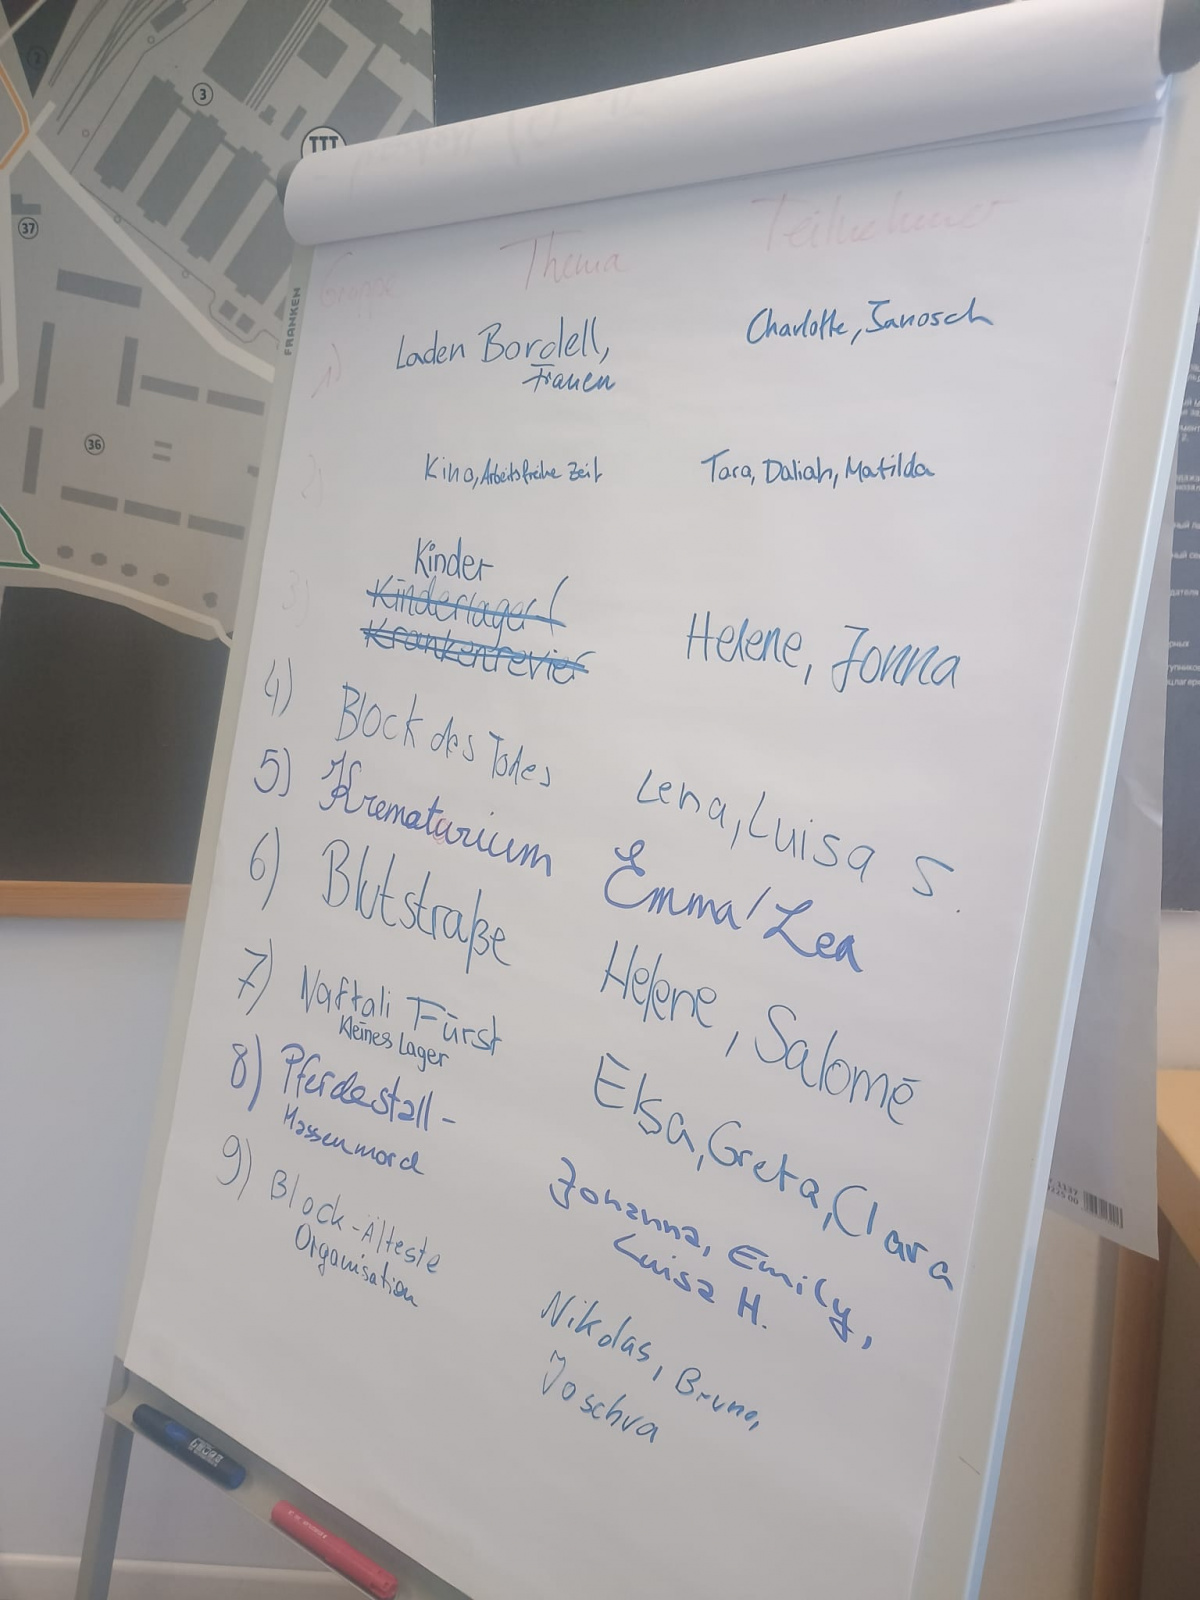 3
III
37
36
FRANKEN
Gruppe Thema Teilnehmer
1) Laden Bordell, Charlotte, Janosch
Frauen
2) Kino, Arbeitsfreihe Zeit Tara, Daliah, Matilda
Kinder
3) Kinderlager (
Krankenrevier Helene, Jonna
4) Block des Todes Lena, Luisa S.
5) Krematorium Emma/Lea
6) Blutstraße Helene, Salomé
7) Naftali Fürst Elsa, Greta, Clara
Kleines Lager
8) Pferdestall - Johanna, Emily,
Massenmord Luisa H.
9) Block-Älteste Nikolas, Bruno,
Organisation Joschua